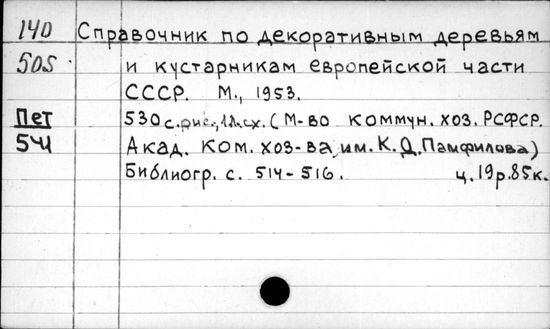 140 Справочник по декоративным деревьям
505 и кустарникам европейской части
СССР. М., 1953.
Пет 530 с. рис., 1 л. сх. (М-во коммун. хоз. РСФСР.
541 Акад. ком. хоз-ва им. К.Д. Памфилова)
Библиогр. с. 514-516. ц. 19 р. 85 к.